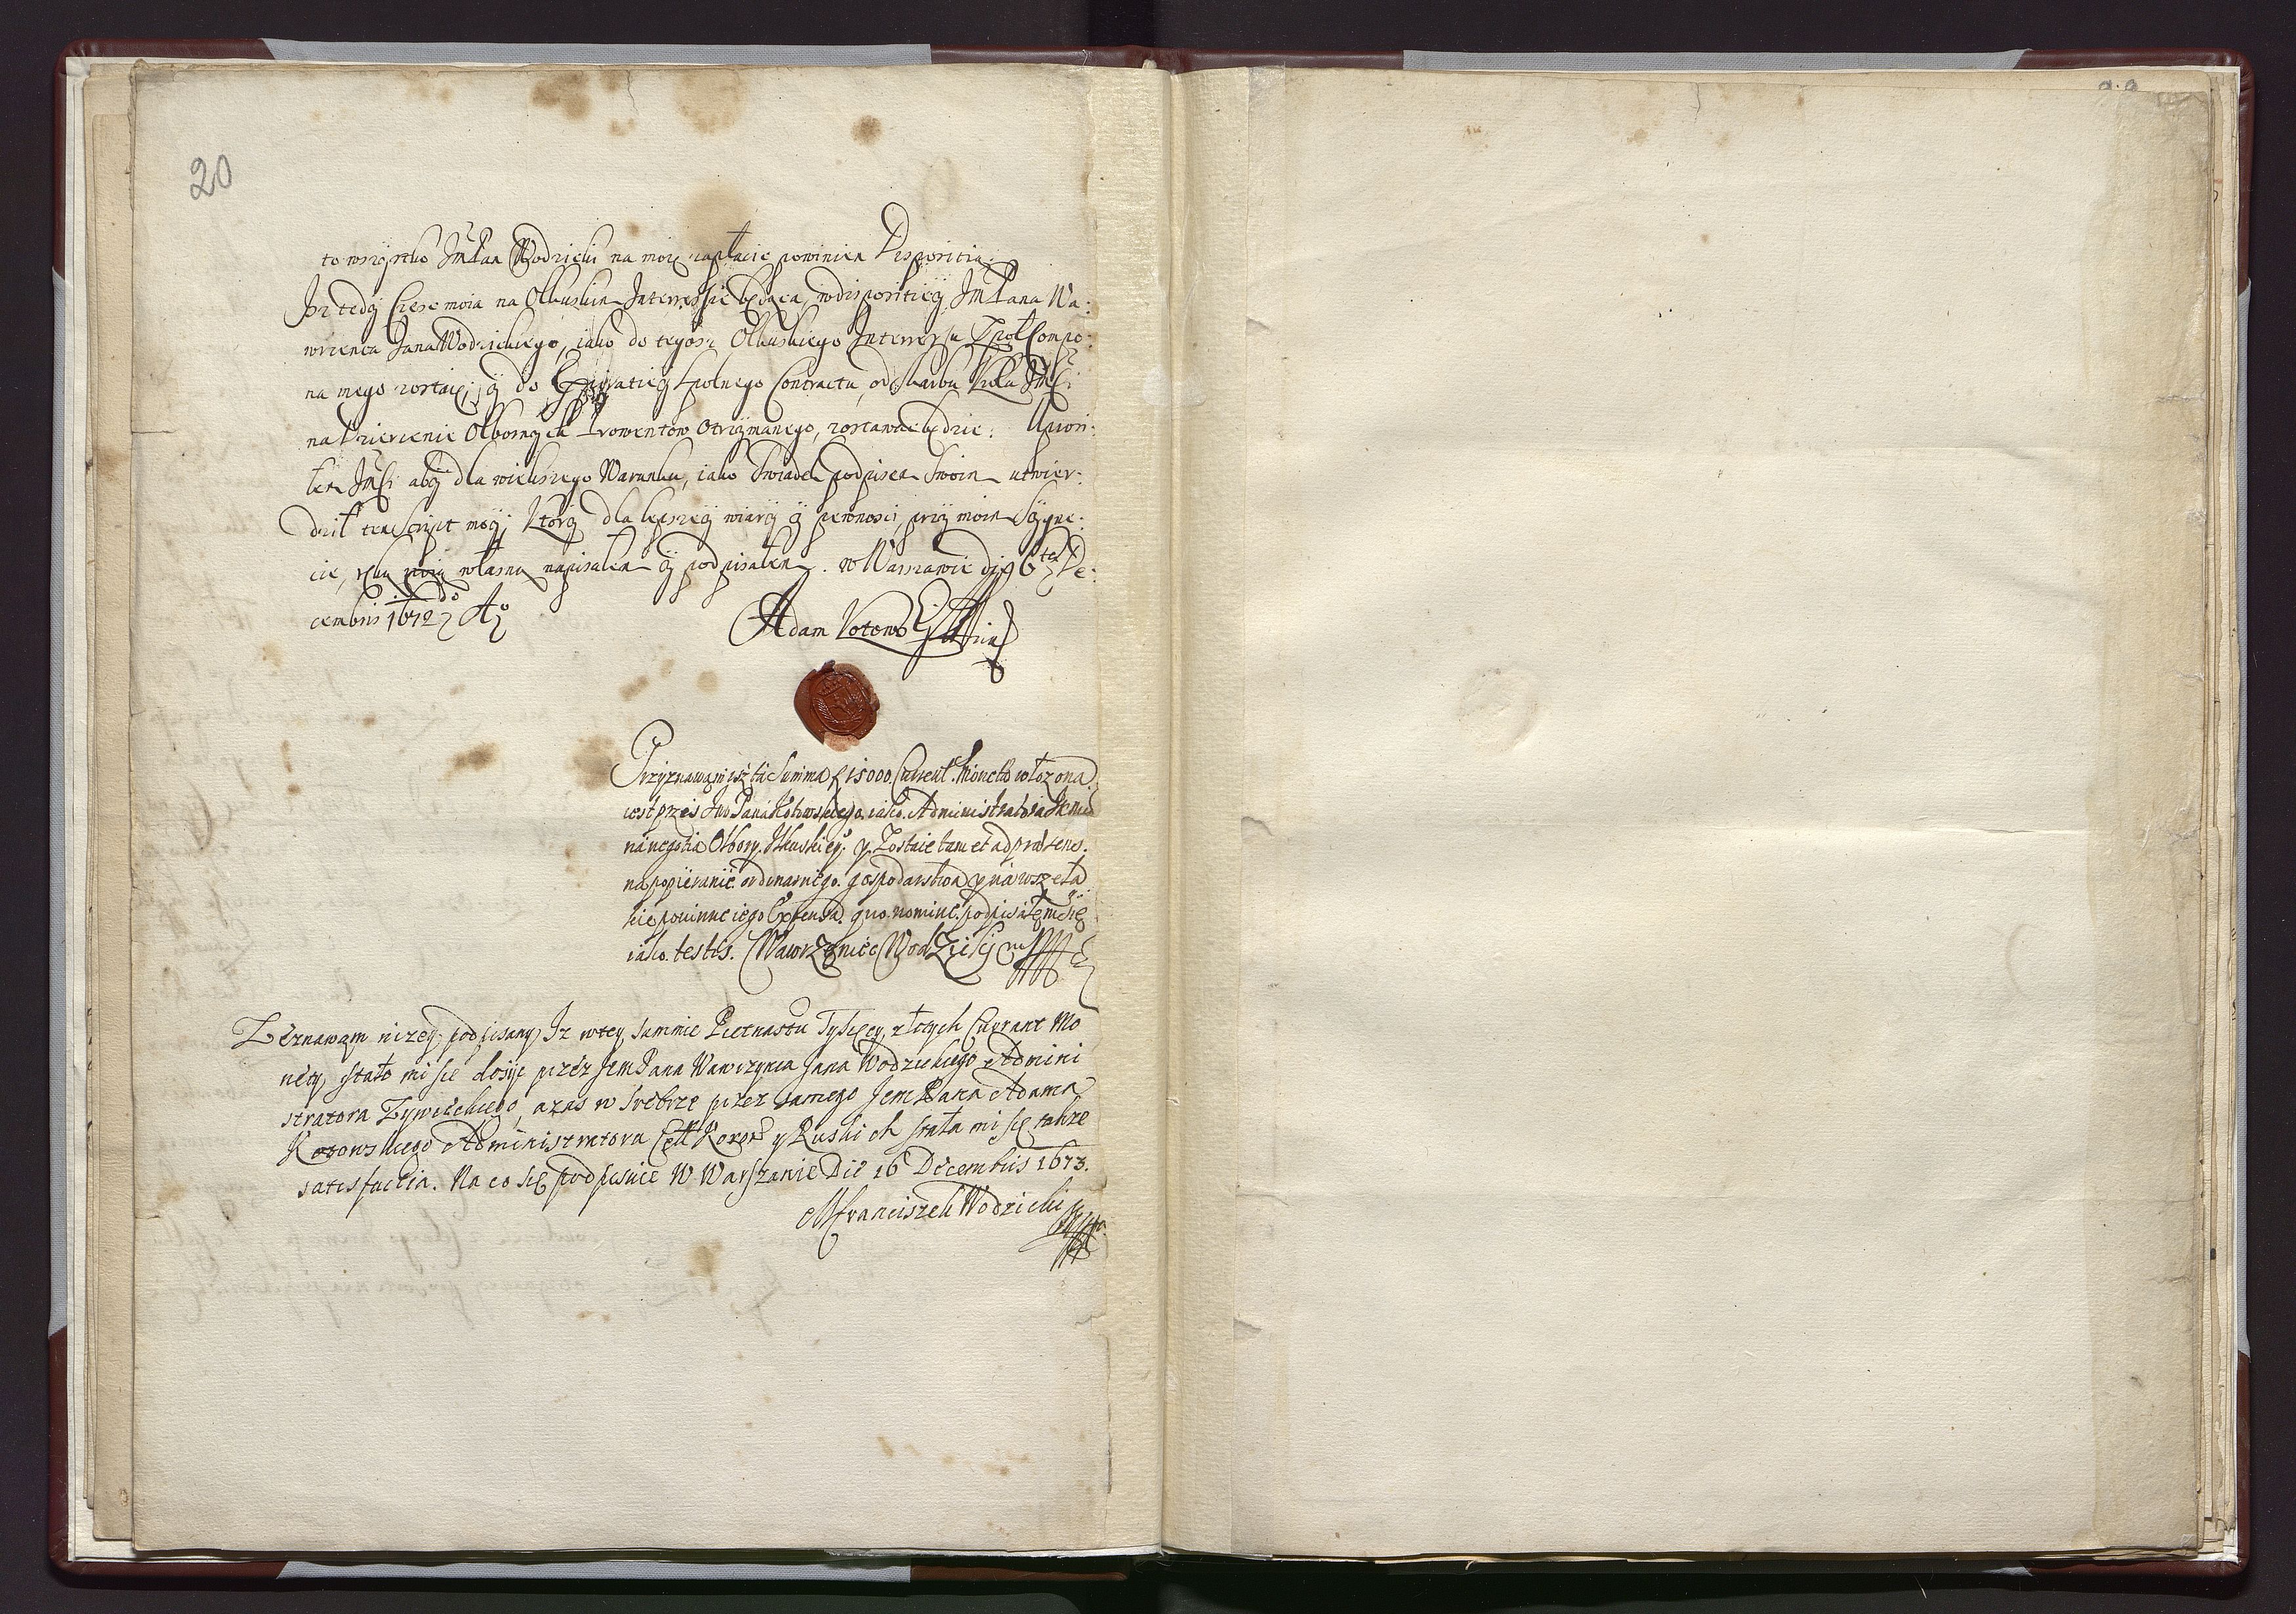 20
to wszystko JmPan Wodzicki na moię zapłacic powinien Dispositią.
Isz tedy Częsc moia na Olkuskim Interessie będąca, w dispositiey JmPana Wa:
wrzenca Jana Wodzickiego, iako do tegosz Olkuskiego Interessu Społ Compo:
na mego zostaie, y do Expiratiey spolnego Contractu, od skarbu Króla JMści
na Dzierzenie Olbornych Prowentow otrzymanego, zostawac będzie. Uprosi:
łem JMści aby dla wiekszego Warunku, iako Swiadek podpisem Swoim utwier:
dził ten Script moy, Ktory dla lepszey wiary y pewnosci, przy moim Sygne:
cie, ręką moią własną napisałem y podpisałem. w Warszawie die 6 te De:
cembris 1672 Ao
Adam Kotowski
Przyznawam isz ta Summa f 15000 Current Monetą włozona
iest przes Imo Pana Kotowskiego iako Administratora
na negotia Olbory Ilkuskiey. y Zostaie tam et ad praesens.
na popieranie ordinarnego gospodarstwa y na wszela
kie powinne iego Expensa. quo nomine podpisałem się
iako testis. Wawrzeniec Wodzicki mp
Zeznawam nizey podpisany Iz w tey summie Pietnastu Tysięcy złotych Currant Mo
nety, stało mi się dosyc przez Jem Pana Wawrzynca Jana Wodzickiego Admini
stratora Zywieckiego, a zas w srebrze przez samego Jem Pana Adama
Kotowskiego Administratora Cełł Koron y Ruskich stała mi się takze
satisfactia. Na co się podpisuię W Warszawie Die 16 Decembris 1673.
M franciszek Wodzicki mp